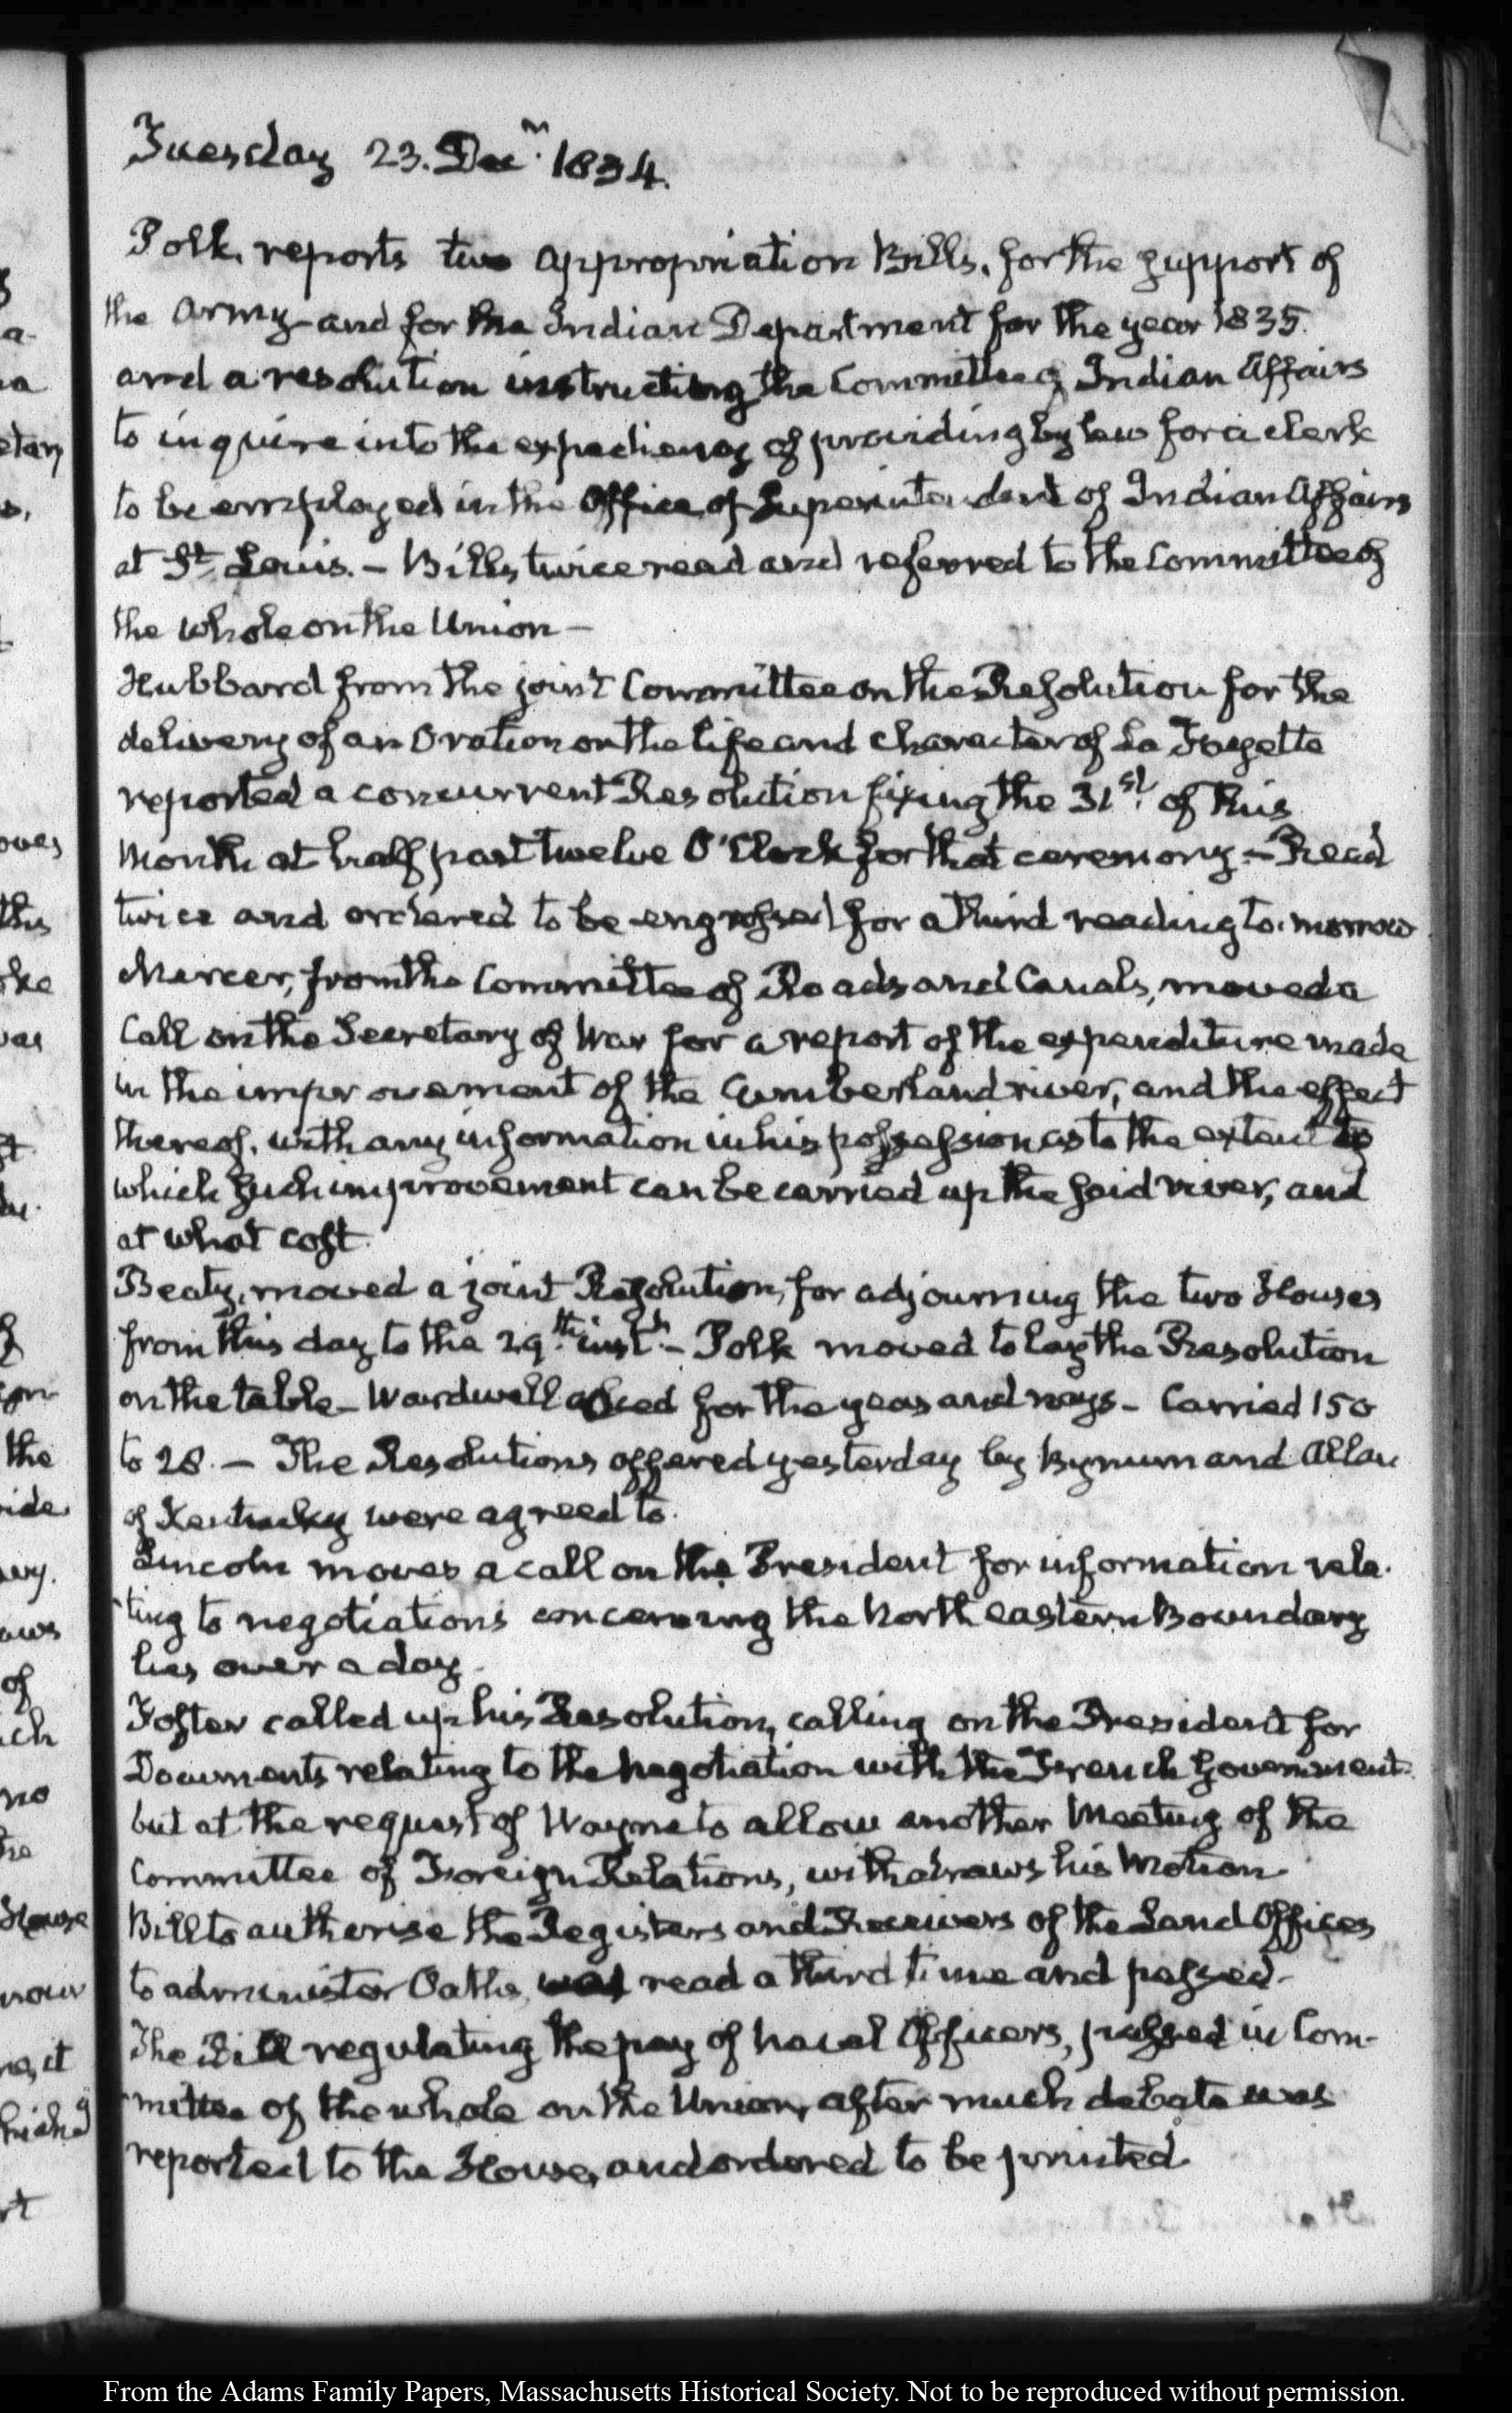 Tuesday 23. Decr. 1834.
Polk, reports two appropriation Bills, for the support of
the army and for the Indian Department for the year 1835.
and a resolution instructing the Committee of Indian Affairs
to inquire into the expediency of providing by law for a clerk
to be employed in the Office of Superintendent of Indian Affairs
at St. Louis. — Bills twice read and referred to the Committee of
the whole on the Union —
Hubbard from the joint Committee on the Resolution for the
delivery of an Oration on the life and character of La Fayette
reported a concurrent Resolution fixing the 31st. of this
Month at half past twelve O'Clock for that ceremony. — Read
twice and ordered to be engrossed for a third reading to-morrow
Mercer, from the Committee of Roads and Canals, moved a
Call on the Secretary of War for a report of the expenditure made
in the improvement of the Cumberland river, and the effect
thereof, with any information in his possession as to the extent to
which such improvement can be carried up the said river, and
at what cost.
Beaty, moved a joint Resolution, for adjourning the two Houses
from this day to the 29th. inst. — Polk moved to lay the Resolution
on the table — Wardwell asked for the yeas and nays — Carried 150
to 28. — The Resolutions offered yesterday by Bynum and Allan
of Kentucky were agreed to.
Lincoln moves a call on the President for information rela-
ting to negotiations concerning the North eastern Boundary
lies over a day.
Foster called up his Resolution, calling on the President for
Documents relating to the negotiation with the French Government.
but at the request of Wayne to allow another Meeting of the
Committee of Foreign Relations, withdraws his Motion
Bill to autherise the Registers and Receivers of the Land Offices
to administer Oaths, was read a third time and passed.
The Bill regulating the pay of naval Officers, passed in Com-
mittee of the whole on the Union, after much debate was
reported to the House, and ordered to be printed.
From the Adams Family Papers, Massachusetts Historical Society. Not to be reproduced without permission.